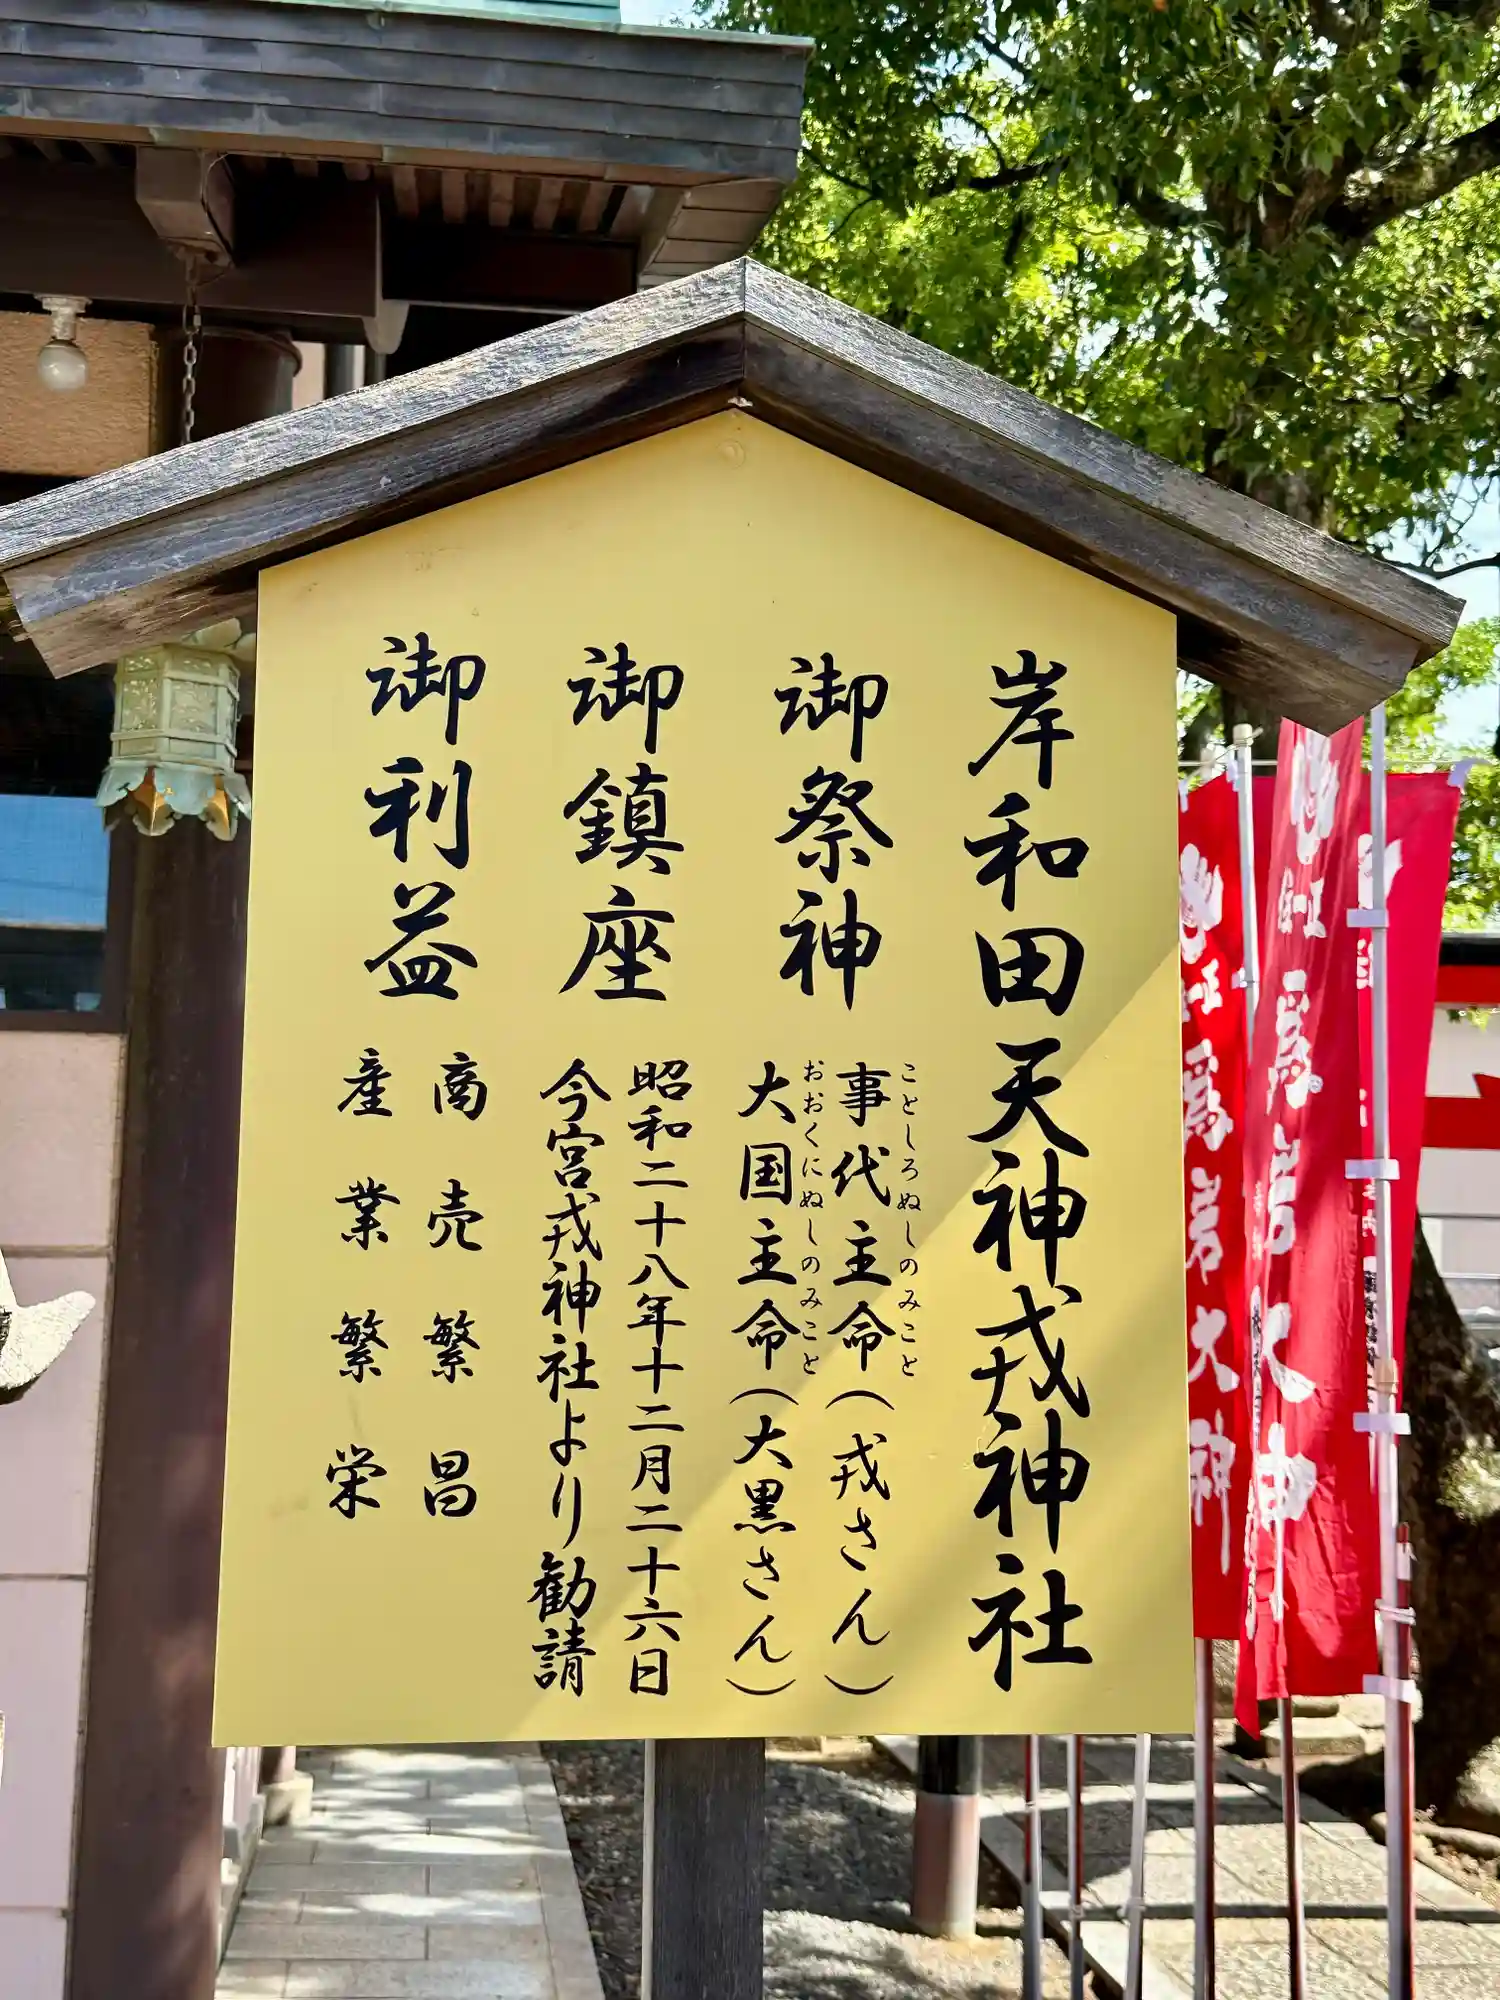 岸和田天神戎神社
御祭神
ことしろぬしのみこと
事代主命(戎さん)
おおくにぬしのみこと
大国主命(大黒さん)
御鎮座
昭和二十八年十二月二十六日
今宮戎神社より勧請
御利益
商売繁昌
産業繁栄
正一
爲岩大神
正一
爲岩大神